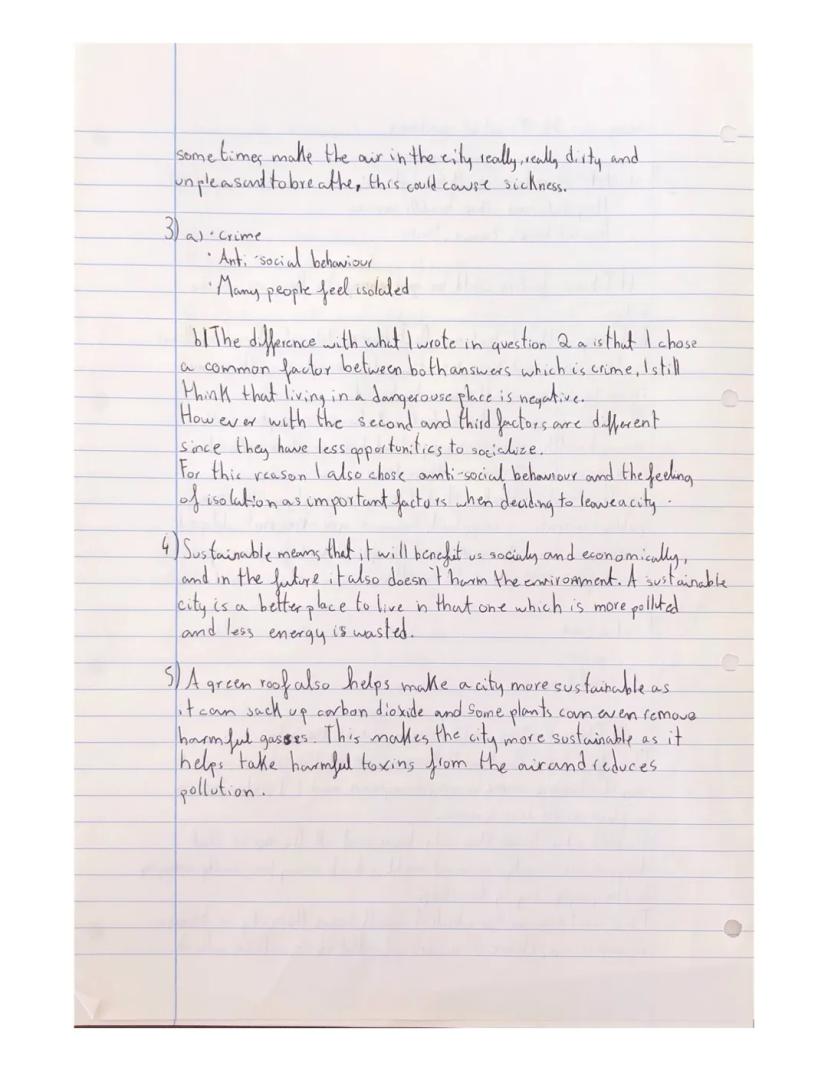 sometimes make the air in the city really, really dirty and
unpleasant to breathe, this could cause sickness.
3) a) · Crime
· Anti-social behaviour
· Many people feel isolated
b) The difference with what I wrote in question 2 a is that I chose
a common factor between both answers which is crime, I still
think that living in a dangerouse place is negative.
However with the second and third factors are different
since they have less opportunities to socialize.
For this reason I also chose anti-social behaviour and the feeling
of isolation as important factors when deciding to leave a city.
4) Sustainable means that it will benefit us socialy and economically,
and in the future it also doesn't harm the enviroment. A sustainable
city is a better place to live in that one which is more polluted
and less energy is wasted.
5) A green roof also helps make a city more sustainable as
it can suck up carbon dioxide and some plants can even remove
harmful gasses. This makes the city more sustainable as it
helps take harmful toxins from the air and reduces
pollution.